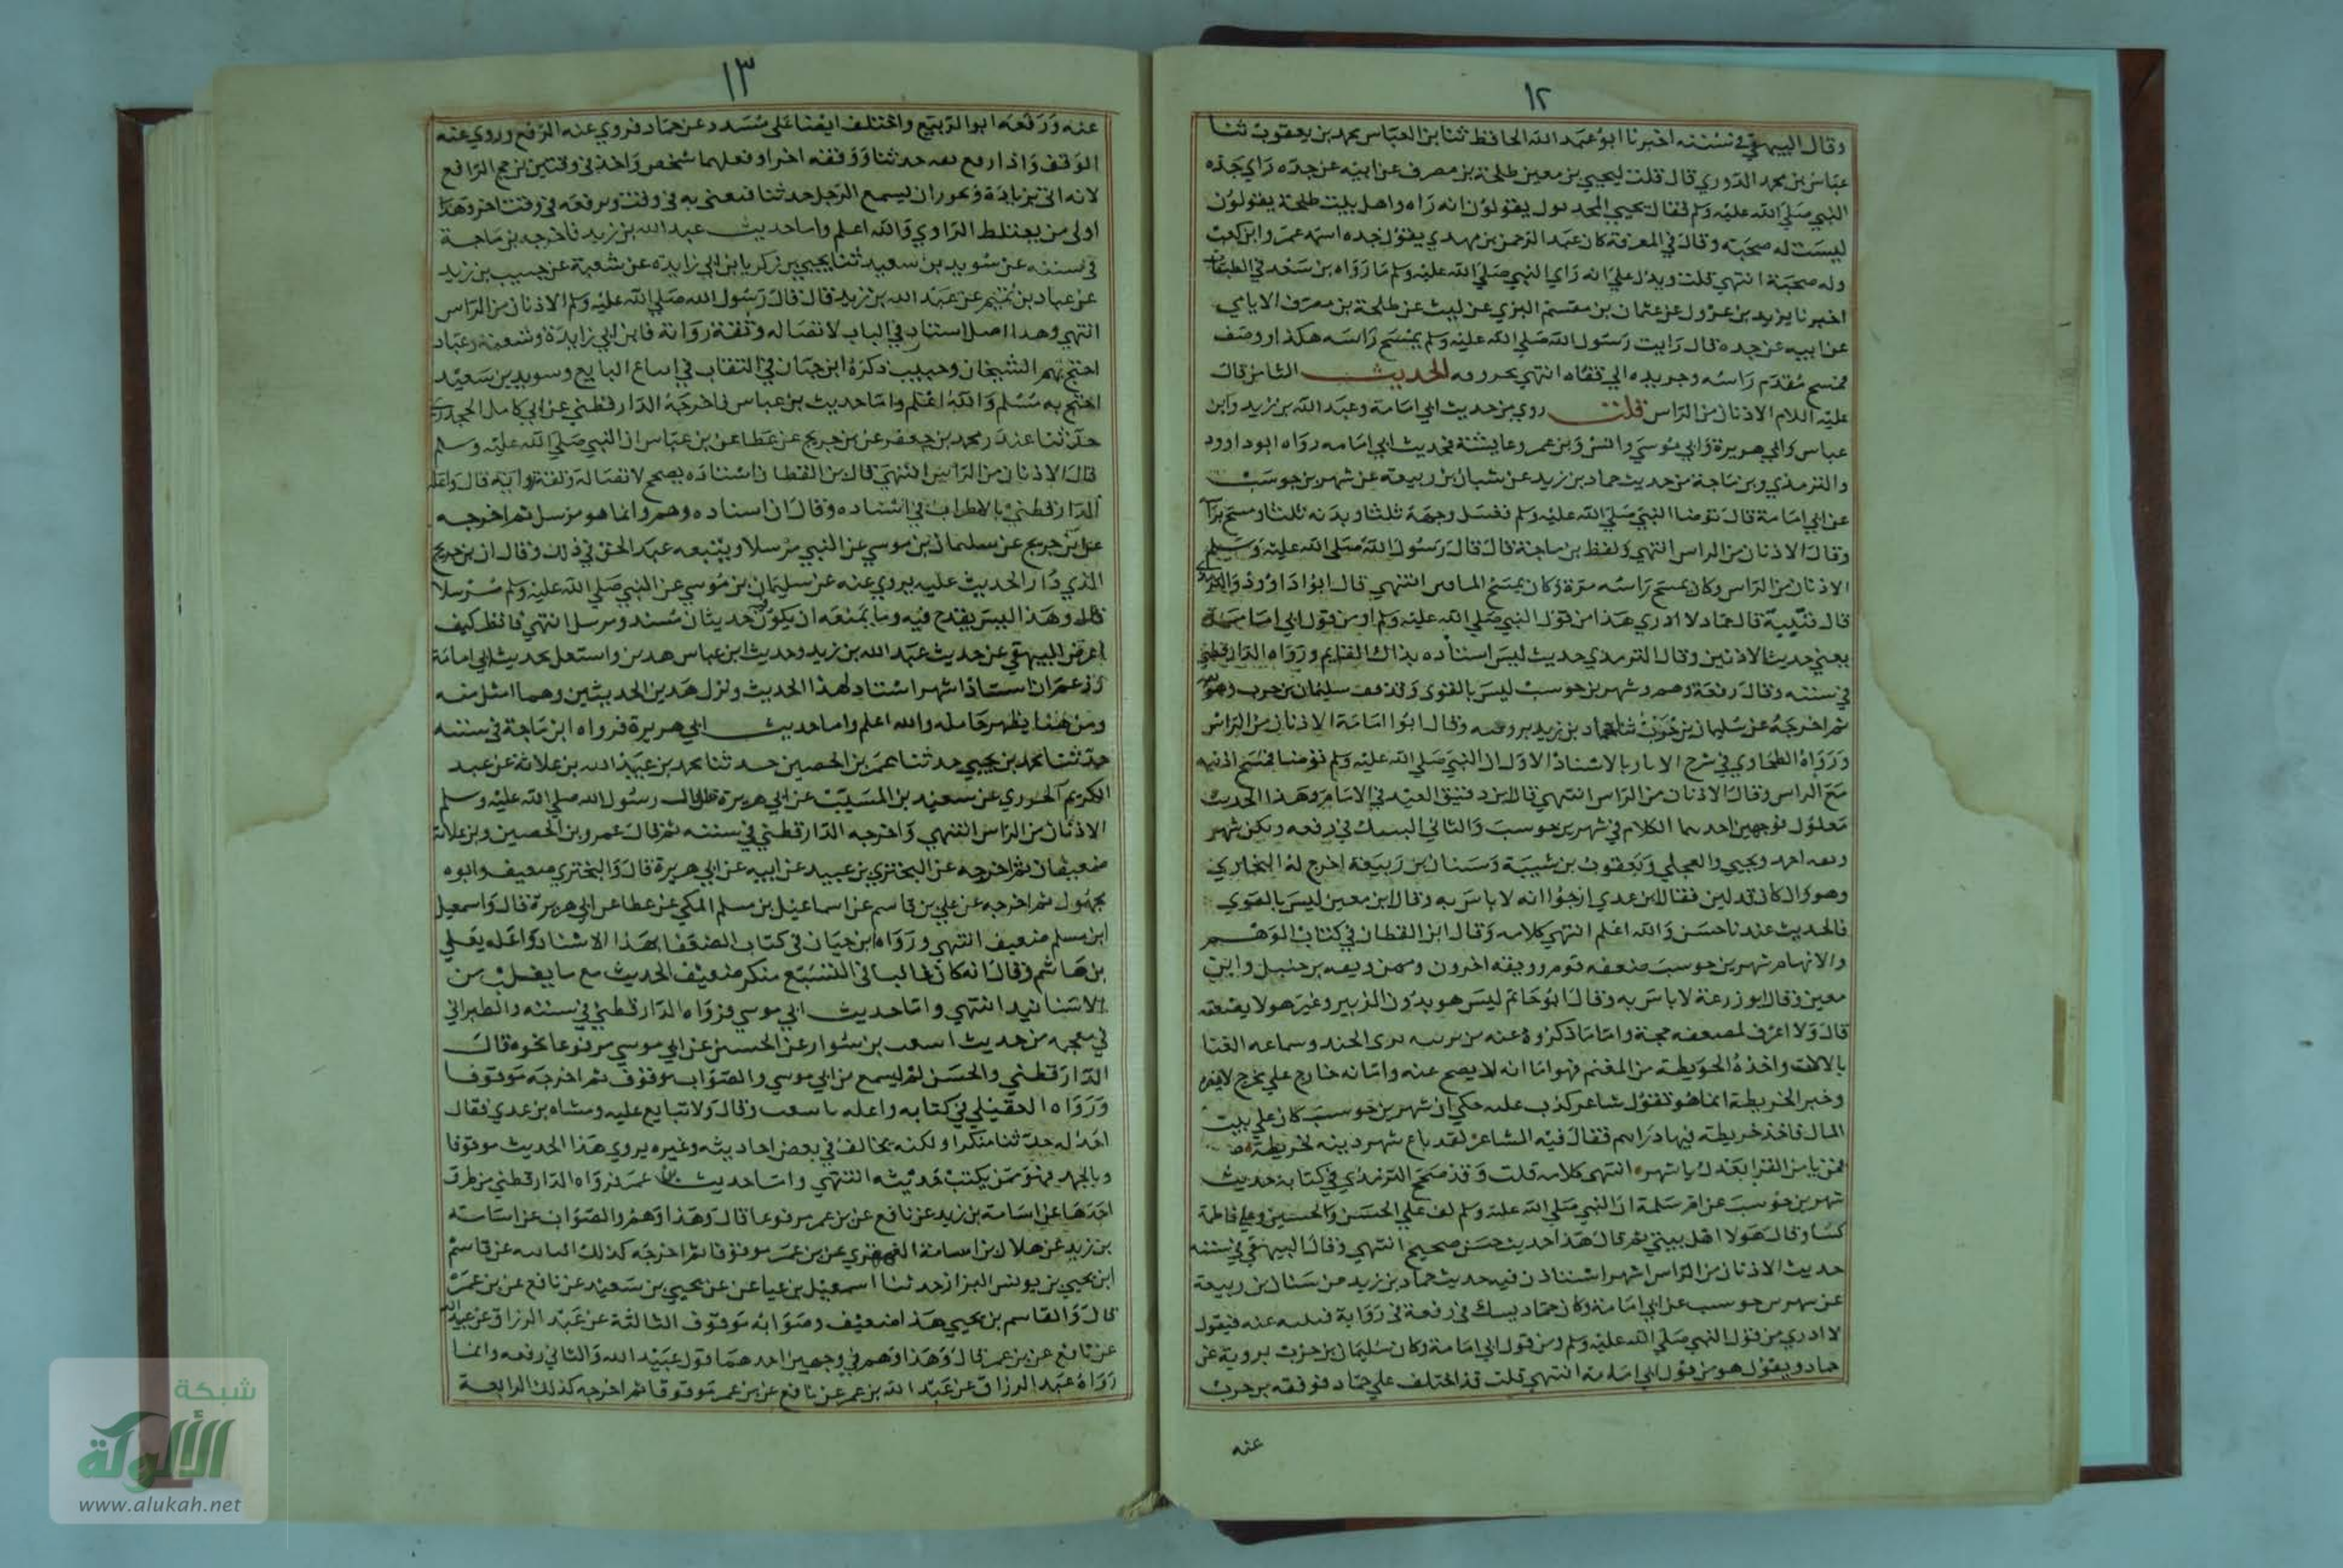 ١٢
وقال البيهقي في سننه اخبرنا ابو عبد الله الحافظ ثنا بن العباس محمد بن يعقوب ثنا
عباس بن محمد الدوري قال قلت ليحيي بن معين طلحة بن مصرف عن ابيه عن جده راي جده
النبي صلي الله عليه وسلم فقال يحيي المحدثون يقولون انه راه واهل بيت طلحة يقولون
ليست له صحبة وقال في المعرفة كان عبد الرحمن بن مهدي يقول جده اسمه عمر وابن كعب
وله صحبة انتهي قلت ويدل علي انه راي النبي صلي الله عليه وسلم ما رواه بن سعد في الطبقات
اخبرنا يزيد بن عن عثمان بن مقسم البزي عن ليث عن طلحة بن مصرف الايامي
عن ابيه عن جده قال رايت رسول الله صلي الله عليه وسلم يمسح راسه هكذا ووصف
فمسح مقدم راسه وجر يديه الي قفاه انتهي بحروفه الحديث الثامن قال
عليه اللام الاذنان من الراس قلت روي من حديث ابي امامة وعبد الله بن زيد وابن
عباس وابي هريرة وابي موسي وانس وبن عمر وعايشة فحديث ابي امامه رواه ابوداوود
والترمذي وبن ماجة من حديث حماد بن زيد عن بن ربيعه عن شهر بن حوسب
عن ابي امامة قال توضا النبي صلي الله عليه وسلم فغسل وجهه ثلثا ويديه ثلثا ومسح
وقال الاذنان من الراس انتهي ولفظ بن ماجة قال قال رسول الله صلي الله عليه وسلم
الاذنان من الراس وكان يمسح راسه مرة وكان يمسح انتهي قال ابوا داوود
قال قتيبة قال حماد لا ادري هذا من قول النبي صلي الله عليه وسلم او من قول ابي امامة
يعني حديث الاذنين وقال الترمذي حديث ليس اسناده بذاك القايم ورواه الدارقطني
في سننه وقال رفعه وهم وشهر بن حوسب ليس بالقوي وقد وقف سليمان بن حرب
ثم اخرجه عن سليمان بن حرب ثنا حماد بن زيد به وقال ابوا امامة الاذنان من الراس
ورواه الطحاوي في شرح الاثار بالاسناد الاول ان النبي صلي الله عليه وسلم توضا فمسح اذنيه
مع الراس وقال الاذنان من الراس انتهي قال بن دقيق العيد في الامام وهذا الحديث
معلول بوجهين احدهما الكلام في شهر بن حوسب والثاني الشك في رفعه ولكن شهر
وثقه احمد ويحيي والعجلي ويعقوب بن شيبة وسنان بن ربيعة اخرج له البخاري
وهو وان كان قد لين فقال ابن عدي ارجوا انه لا باس به وقال ابن معين ليس بالقوي
فالحديث عندنا حسن والله اعلم انتهي كلامه وقال ابن القطان في كتاب الوهم
والايهام شهر بن حوسب ضعفه قوم ووثقه اخرون وممن وثقه بن حنبل وابن
معين وقال ابو زرعة لا باس به وقال ابو حاتم ليس هو بدون الزبير وغير هولا يضعفه
قال ولا اعرف لمضعفه حجة واما ما ذكروه عنه من تزيه بزي الجند وسماعه الغنا
بالالات واخذه الخويطة من المغنم فهو اما انه لا يصح عنه واما انه خارج علي مخرج لا يضر
وخبر الخريطة انما هو تقول شاعر كذب عليه حكي ان شهر بن حوسب كان علي بيت
المال فاخذ خريطة فيها دراهم فقال فيه الشاعر لقد باع شهر دينه بخريطة
فمن يامن القرا بعدك يا شهر انتهي كلامه قلت وقد صحح الترمذي في كتابه حديث
شهر بن حوسب عن ام سلمة ان النبي صلي الله عليه وسلم لف علي الحسن والحسين وعلي وفاطمة
كسا وقال هولا اهل بيتي ثم قال هذا حديث حسن صحيح انتهي وقال البيهقي في سننه
حديث الاذنان من الراس اشهر اسنادا فيه حديث حماد بن زيد عن سنان بن ربيعة
عن شهر بن حوسب عن ابي امامة وكان حماد يشك في رفعه في رواية قتيبه عنه فيقول
لا ادري من قول النبي صلي الله عليه وسلم ومن قول ابي امامة وكان سليمان بن حرب يرويه عن
حماد ويقول هو من قول ابي امامة انتهي قلت قد اختلف علي حماد فوقفه بن حرب
عنه
١٣
عنه ورفعه ابو الربيع واختلف ايضا علي مسدد عن حماد فروي عنه الرفع وروي عنه
الوقف واذا رفع ثقه حديثا ووقفه اخر او فعلهما شخص واحد في وقتين ترجح الرافع
لانه اتي بزيادة ويجوز ان يسمع الرجل حديثا فيفتي به في وقت ويرفعه في وقت اخر وهذا
اولي من يغلط الراوي والله اعلم واما حديث عبد الله بن زيد فاخرجه بن ماجة
في سننه عن سويد بن سعيد ثنا يحيي بن زكريا بن ابي زايده عن شعبة عن حبيب بن زيد
عن عباد بن تميم عن عبد الله بن زيد قال قال رسول الله صلي الله عليه وسلم الاذنان من الراس
انتهي وهذا اصل اسناد في الباب لاتصاله وثقة رواته فابن ابي زايدة وشعبة وعباد
احتج بهم الشيخان وحبيب ذكره ابن حبان في الثقات في اتباع التابعي وسويد بن سعيد
احتج به مسلم والله اعلم واما حديث بن عباس فاخرجه الدارقطني عن ابي كامل الجحدري
حدثنا غندر محمد بن جعفر عن بن جريج عن عطا عن بن عباس ان النبي صلي الله عليه وسلم
قال الاذنان من الراس انتهي قال بن القطان اسناده صحيح لاتصاله وثقة رواته قال واعله
الدارقطني بالاطراب في اسناده وقال ان اسناده وهم وانما هو مرسل ثم اخرجه
عن بن جريج عن سليمان بن موسي عن النبي مرسلا وتبعه عبد الحق في ذلك وقال ان بن جريج
الذي دار الحديث عليه يروي عنه عن سليمان بن موسي عن النبي صلي الله عليه وسلم مرسلا
قال وهذا ليس يقدح فيه وما يمنعه ان يكون حديثان مسند ومرسل انتهي فانظر كيف
اعرض البيهقي عن حديث عبد الله بن زيد وحديث ابن عباس هذين واستعل بحديث ابي امامة
وزعم ان اسناده اشهر اسناد لهذا الحديث وترك هذين الحديثين وهما امثل منه
ومن هنا يظهر تحامله والله اعلم واما حديث ابي هريرة فرواه ابن ماجة في سننه
حدثنا محمد بن يحيي حدثنا عمر بن الحصين حدثنا محمد بن عبد الله بن علاثة عن عبد
الكريم الجزري عن سعيد بن المسيب عن ابي هريرة قال قال رسول الله صلي الله عليه وسلم
الاذنان من الراس انتهي واخرجه الدارقطني في سننه ثم قال عمرو بن الحصين وبن علاثة
ضعيفان ثم اخرجه عن البختري بن عبيد عن ابيه عن ابي هريرة قال والبختري ضعيف وابوه
مجهول ثم اخرجه عن علي بن قاسم عن اسماعيل بن مسلم المكي عن عطا عن ابي هريرة قال واسمعيل
ابن مسلم ضعيف انتهي ورواه ابن حبان في كتاب الضعفا بهذا الاسناد واعله بعلي
بن هاشم وقال انه كان غاليا في التشيع منكر ضعيف الحديث مع ما يقلب من
الاسانيد انتهي واما حديث ابي موسي فرواه الدارقطني في سننه والطبراني
في معجمه من حديث اسعب بن سوار عن الحسن عن ابي موسي مرفوعا نحوه قال
الدارقطني والحسن لم يسمع من ابي موسي والصواب موقوف ثم اخرجه موقوفا
ورواه العقيلي في كتابه واعله باسعب وقال ولا تتابع عليه ومشاه بن عدي فقال
اجد له حديثا منكرا ولكنه يخالف في بعض احاديثه وغيره يروي هذا الحديث موقوفا
وبالجملة فهو ممن يكتب حديثه انتهي واما حديث بن عمر فرواه الدارقطني من طرق
احدها عن اسامة بن زيد عن نافع عن بن عمر مرفوعا قال وهذا وهم والصواب عن اسامة
بن زيد عن هلال بن اسامة الفهري عن بن عمر موقوفا ثم اخرجه كذلك الثانيه عن قاسم
ابن يحيي بن يونس البزاز حدثنا اسمعيل بن عياش عن يحيي بن سعيد عن نافع عن بن عمر
قال والقاسم بن يحيي هذا ضعيف وصوابه موقوف الثالثة عن عبد الرزاق عن عبيد الله
عن نافع عن بن عمر قال وهذا وهم في وجهين احدهما قول عبيد الله والثاني رفعه وانما
رواه عبد الرزاق عن عبد الله بن عمر عن نافع عن بن عمر موقوفا ثم اخرجه كذلك الرابعة
شبكة
الألوكة
www.alukah.net